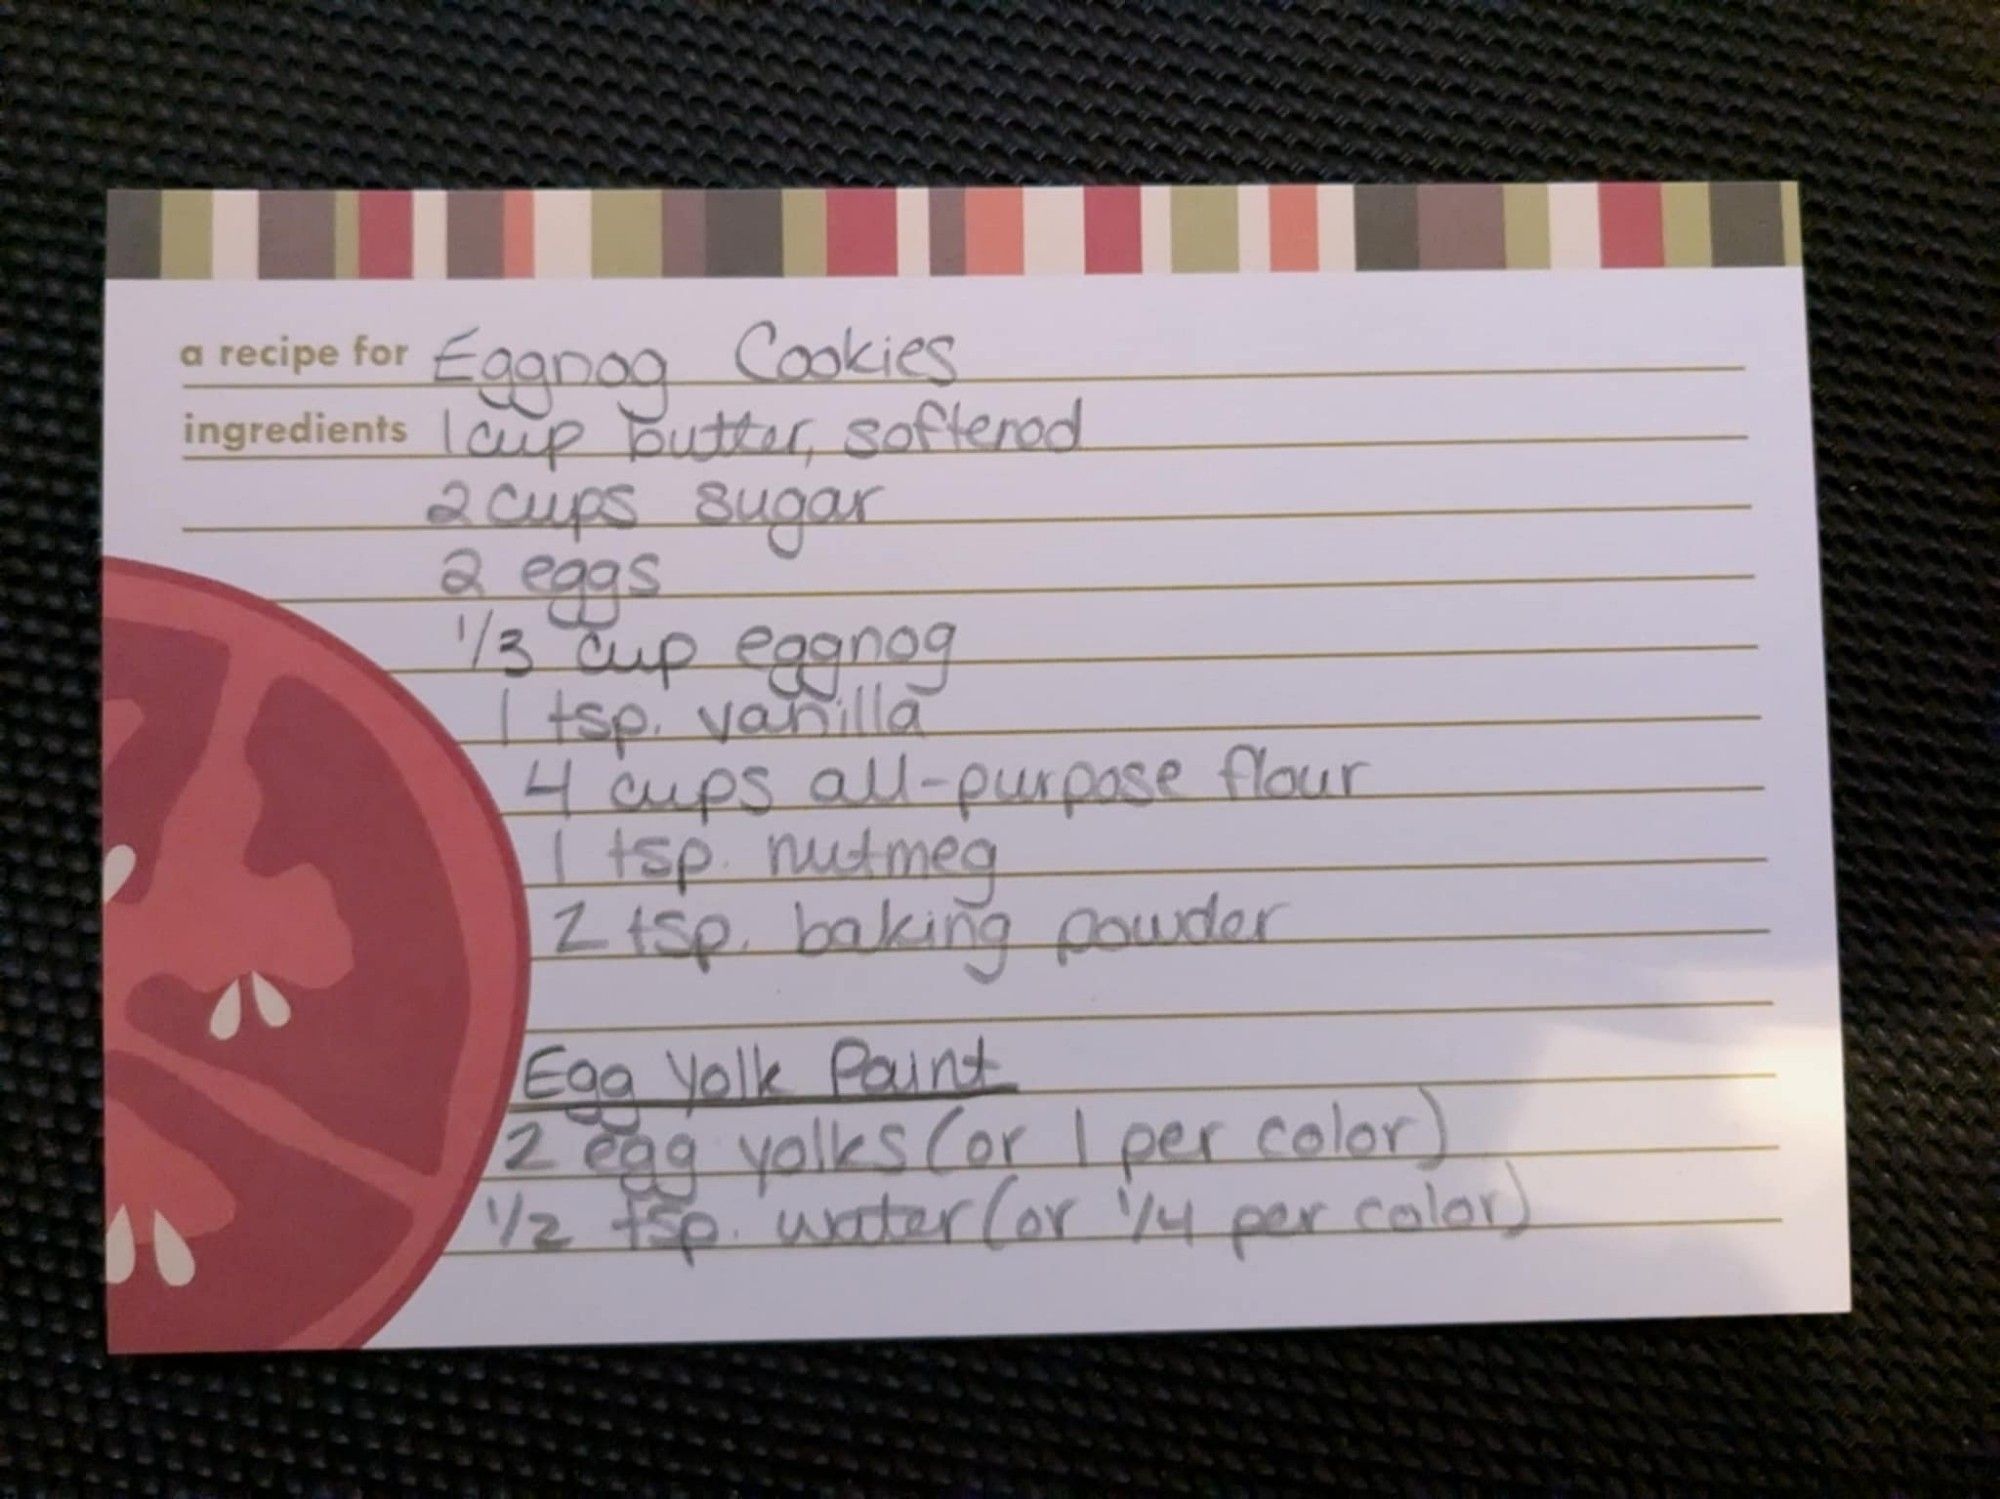 a recipe for Eggnog Cookies
ingredients 1 cup butter, softened
2 cups sugar
2 eggs
1/3 cup eggnog
1 tsp. vanilla
4 cups all-purpose flour
1 tsp. nutmeg
2 tsp. baking powder
Egg Yolk Paint
2 egg yolks (or 1 per color)
1/2 tsp. water (or 1/4 per color)